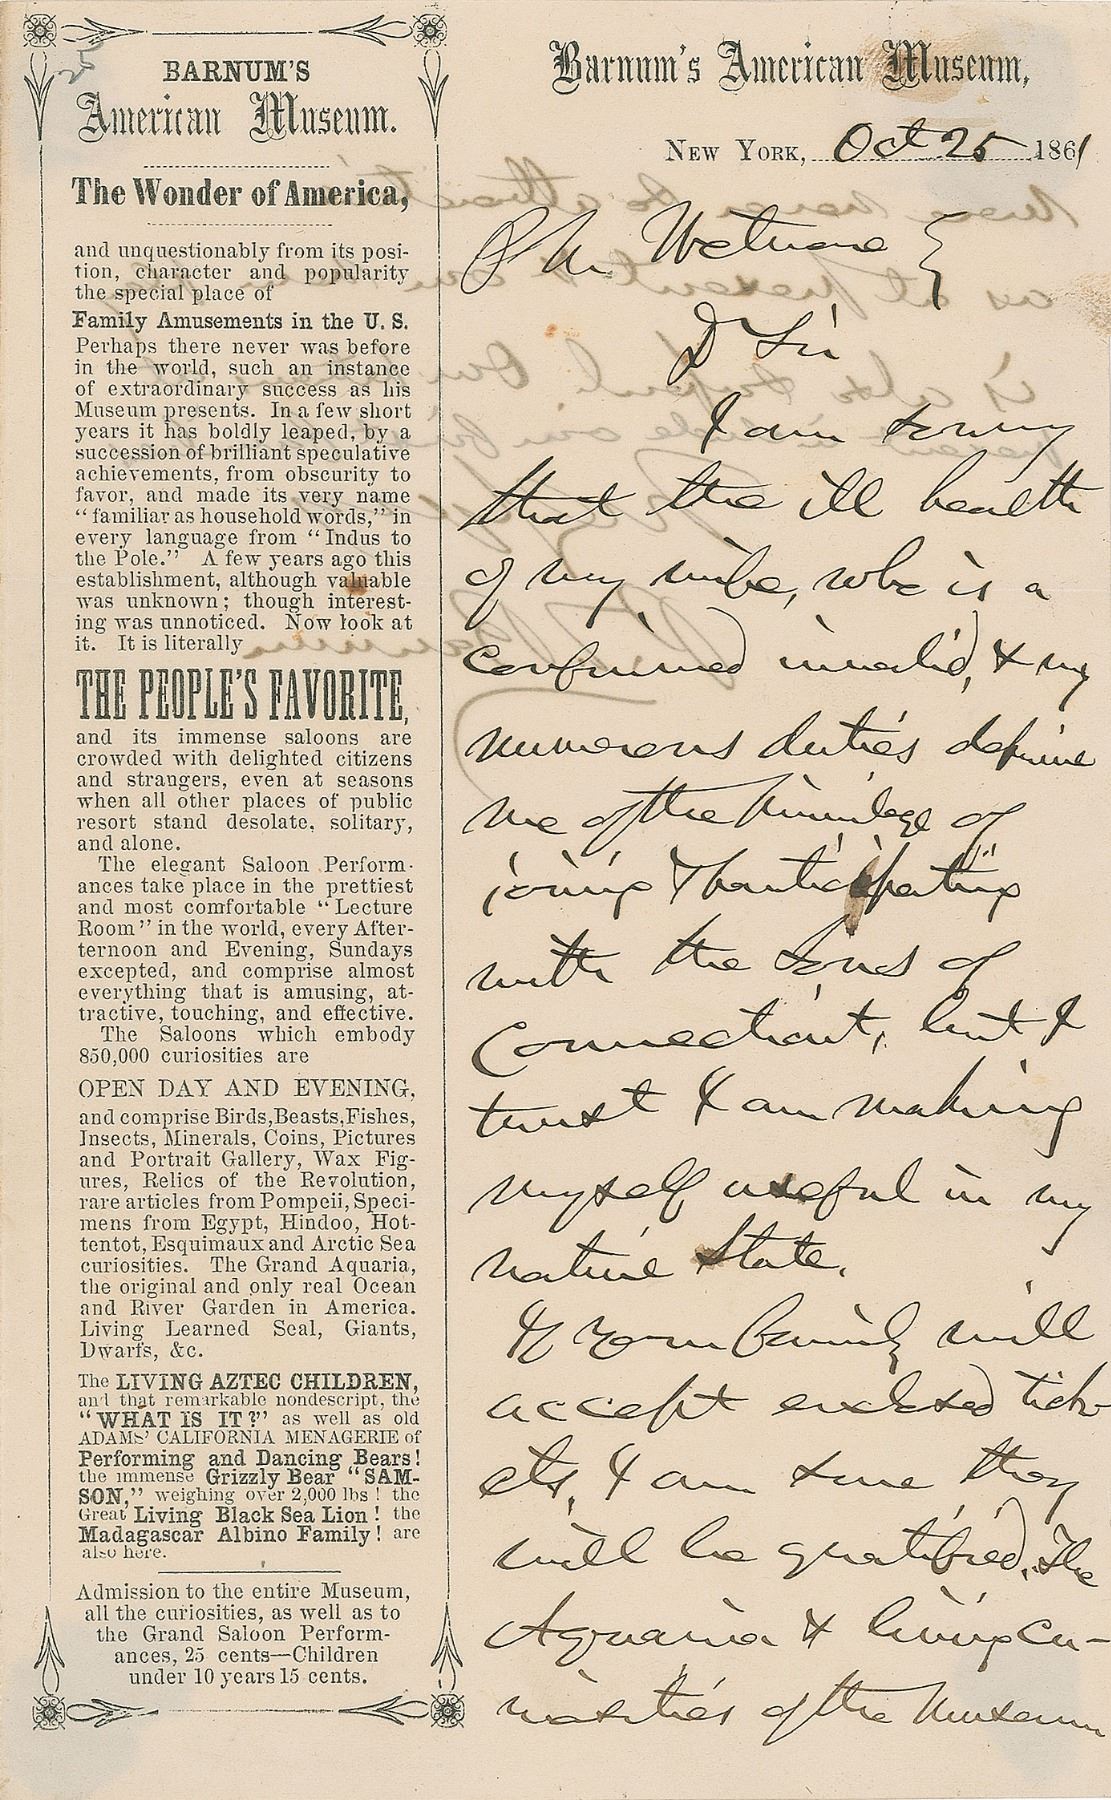 BARNUM'S
American Museum.
The Wonder of America,
and unquestionably from its posi-
tion, character and popularity
the special place of
Family Amusements in the U. S.
Perhaps there never was before
in the world, such an instance
of extraordinary success as his
Museum presents. In a few short
years it has boldly leaped, by a
succession of brilliant speculative
achievements, from obscurity to
favor, and made its very name
"familiar as household words," in
every language from "Indus to
the Pole." A few years ago this
establishment, although valuable
was unknown; though interest-
ing was unnoticed. Now look at
it. It is literally
THE PEOPLE'S FAVORITE,
and its immense saloons are
crowded with delighted citizens
and strangers, even at seasons
when all other places of public
resort stand desolate, solitary,
and alone.
The elegant Saloon Perform-
ances take place in the prettiest
and most comfortable "Lecture
Room" in the world, every After-
ternoon and Evening, Sundays
excepted, and comprise almost
everything that is amusing, at-
tractive, touching, and effective.
The Saloons which embody
850,000 curiosities are
OPEN DAY AND EVENING,
and comprise Birds, Beasts, Fishes,
Insects, Minerals, Coins, Pictures
and Portrait Gallery, Wax Fig-
ures, Relics of the Revolution,
rare articles from Pompeii, Speci-
mens from Egypt, Hindoo, Hot-
tentot, Esquimaux and Arctic Sea
curiosities. The Grand Aquaria,
the original and only real Ocean
and River Garden in America.
Living Learned Seal, Giants,
Dwarfs, &c.
The LIVING AZTEC CHILDREN,
and that remarkable nondescript, the
"WHAT IS IT?" as well as old
ADAMS' CALIFORNIA MENAGERIE of
Performing and Dancing Bears!
the immense Grizzly Bear "SAM-
SON," weighing over 2,000 lbs! the
Great Living Black Sea Lion! the
Madagascar Albino Family! are
also here.
Admission to the entire Museum,
all the curiosities, as well as to
the Grand Saloon Perform-
ances, 25 cents—Children
under 10 years 15 cents.
Barnum's American Museum,
NEW YORK, Oct 25 1861
P M Wetmore
D Sir
I am sorry
that the ill health
of my wife, who is a
confirmed invalid, & my
numerous duties deprive
me of the privilege of
joining & participating
with the sons of
Connecticut, but I
trust I am making
myself useful in my
native State.
If your family will
accept enclosed tick-
ets, I am sure they
will be gratified. The
Aquaria & living cu-
riosities of the Museum